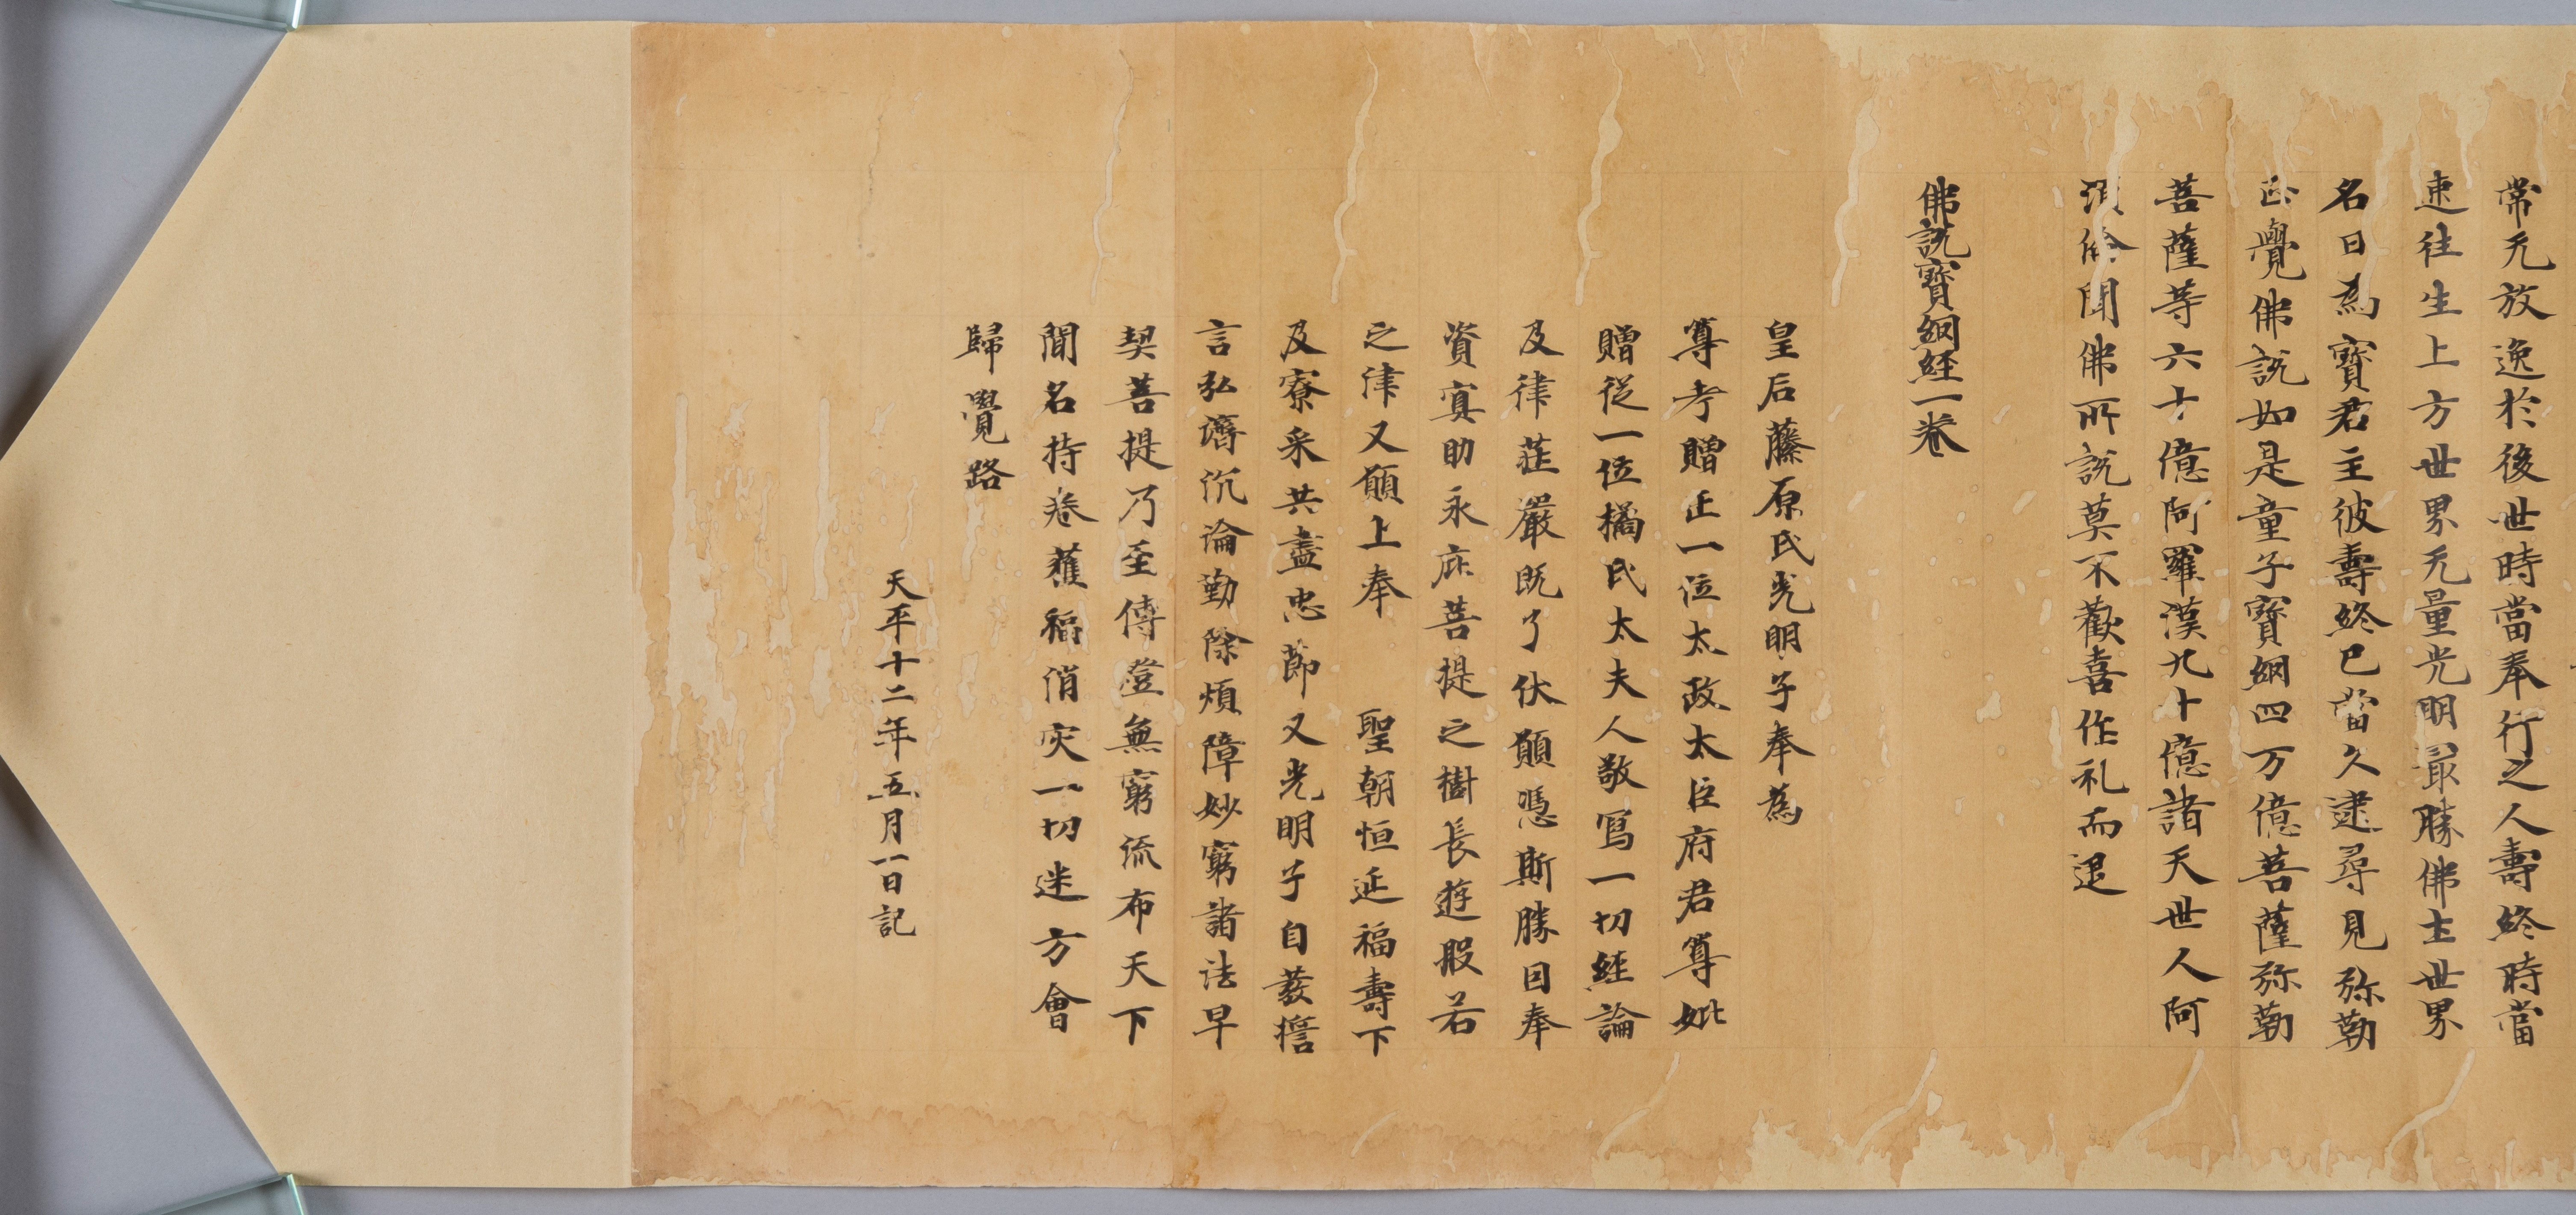 常无放逸於後世時當奉行之人壽終時當
速往生上方世界无量光明最勝佛土世界
名曰為寶君主彼壽終已當久逮尋見弥勒
正覺佛說如是童子寶網四万億菩薩弥勒
菩薩等六十億阿羅漢九十億諸天世人阿
須倫聞佛所說莫不歡喜作礼而退
佛說寶網經一卷
皇后藤原氏光明子奉為
尊考贈正一位太政太臣府君尊妣
贈從一位橘氏太夫人敬寫一切經論
及律莊嚴既了伏願憑斯勝因奉
資冥助永庇菩提之樹長遊般若
之津又願上奉　聖朝恒延福壽下
及寮采共盡忠節又光明子自發擔
言弘濟沉淪勤除煩障妙窮諸法早
契菩提乃至傳燈無窮流布天下
聞名持卷獲福消灾一切迷方會
歸覺路
天平十二年五月一日記